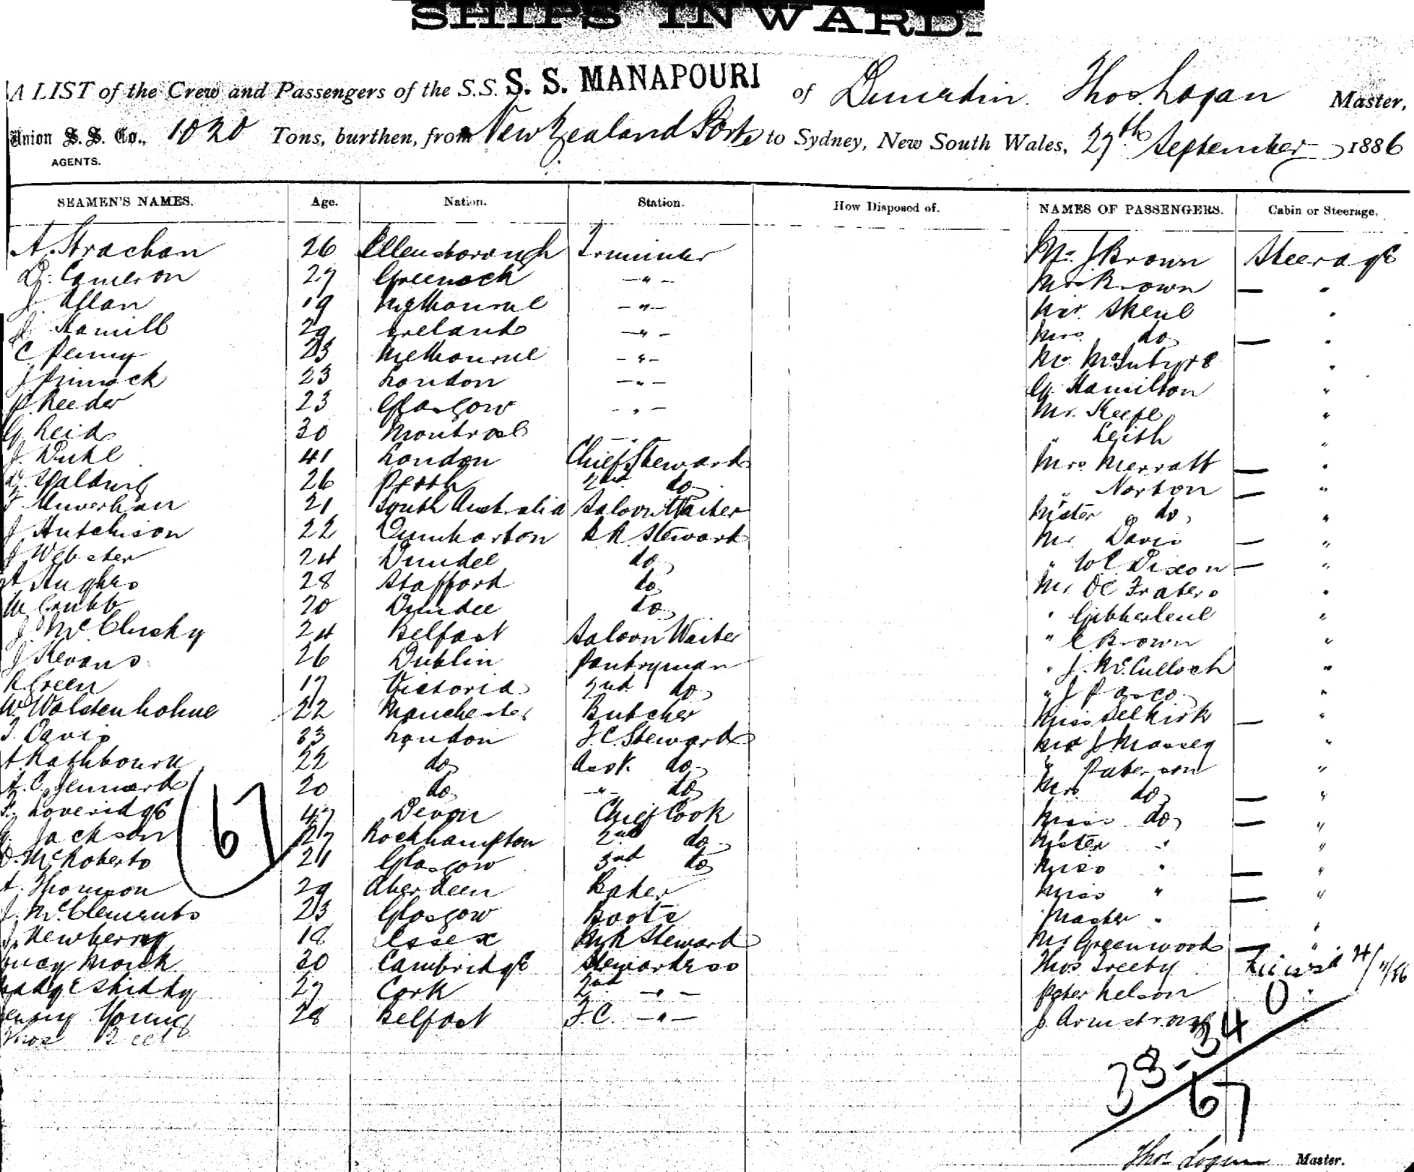 SHIPS INWARD.
A LIST of the Crew and Passengers of the S.S. S. S. MANAPOURI of Dunedin. Thos. Logan Master,
Union S. S. Co., 1020 Tons, burthen, from New Zealand Ports to Sydney, New South Wales, 27th September 1886
AGENTS.
SEAMEN'S NAMES. Age. Nation. Station. How Disposed of. NAMES OF PASSENGERS. Cabin or Steerage.
A. Strachan 26 Ellensborough Trimmer Mr. J. Brown Steerage
D. Cameron 27 Greenock — " — Mrs Brown — "
J. Allan 19 Melbourne — " — Mr. Skene "
J. Hamill 29 Ireland — " — Mrs do — "
C. Penny 23 Melbourne — " — Mr. McIntyre "
J. Pinnock 23 London — " — G. Hamilton "
J. Reeder 23 Glasgow — " — Mr. Keefe "
G. Reid 30 Montrose " Leith "
J. Duke 41 London Chief Steward Mrs Merratt — "
Spalding 26 Perth 2nd do " Norton — "
21 South Australia Saloon Waiter Mister do "
J. Hutchison 22 Dumbarton B.R. Steward Mr Davis — "
J. Webster 24 Dundee do " W C Dixon — "
A Hughes 28 Stafford do Mr "
W. Crubb 20 Dundee do " "
J. McClusky 24 Belfast Saloon Waiter " C Brown "
J. Kevans 26 Dublin Pantryman " J. McCulloch "
A Green 17 Victoria 2nd do " J Pasco "
W. Wolstenholme 22 Manchester Butcher Miss Selkirk — "
T. Davis 33 London F.C. Steward Mr J Massey "
A. Rathbourn 22 do Asst. do " Paterson "
A. C. Jennard 20 do — " — do Mrs do — "
Loveridge 47 Devon Chief Cook Miss do — "
Jackson 27 Rockhampton 2nd do Mister " "
D. McRoberts 21 Glasgow 3rd do Miss " — "
A. Thomson 29 Aberdeen Baker Miss " — "
J. McClements 23 Glasgow Boots Master " "
J. Newberry 18 Essex M.R Steward Mr Greenwood — "
Lucy Monck 30 Cambridge Stewardess Thos Treeby
Madge 27 Cork 2nd — " — Peter Nelson "
Jenny Young 28 Belfast F.C. — " — J. Armstrong
Thos
67
0
38-34
67
Thos Logan Master.